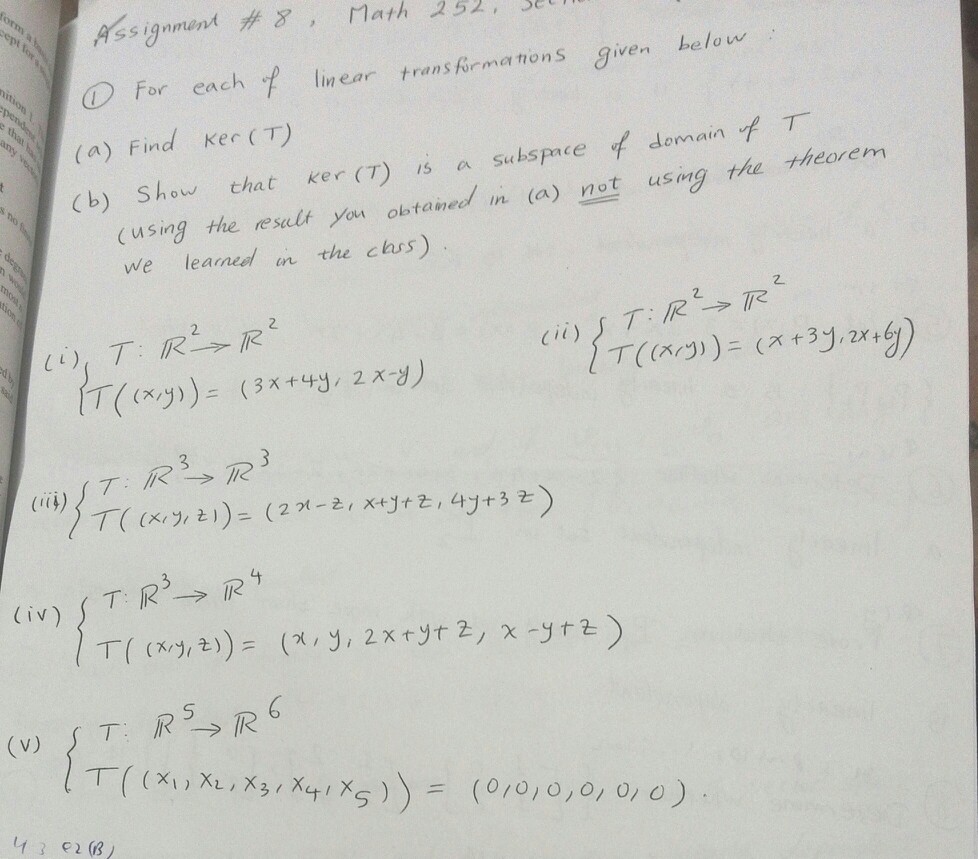 Assignment # 8, Math 252,
① For each of linear transformations given below :
(a) Find Ker (T)
(b) Show that Ker (T) is a subspace of domain of T
(using the result you obtained in (a) not using the theorem
we learned in the class).
(i) { T: ℝ² → ℝ²
T((x,y)) = (3x+4y, 2x-y)
(ii) { T: ℝ² → ℝ²
T((x,y)) = (x+3y, 2x+6y)
(iii) { T: ℝ³ → ℝ³
T((x,y,z)) = (2x-z, x+y+z, 4y+3z)
(iv) { T: ℝ³ → ℝ⁴
T((x,y,z)) = (x, y, 2x+y+z, x-y+z)
(v) { T: ℝ⁵ → ℝ⁶
T((x₁, x₂, x₃, x₄, x₅)) = (0,0,0,0,0,0).